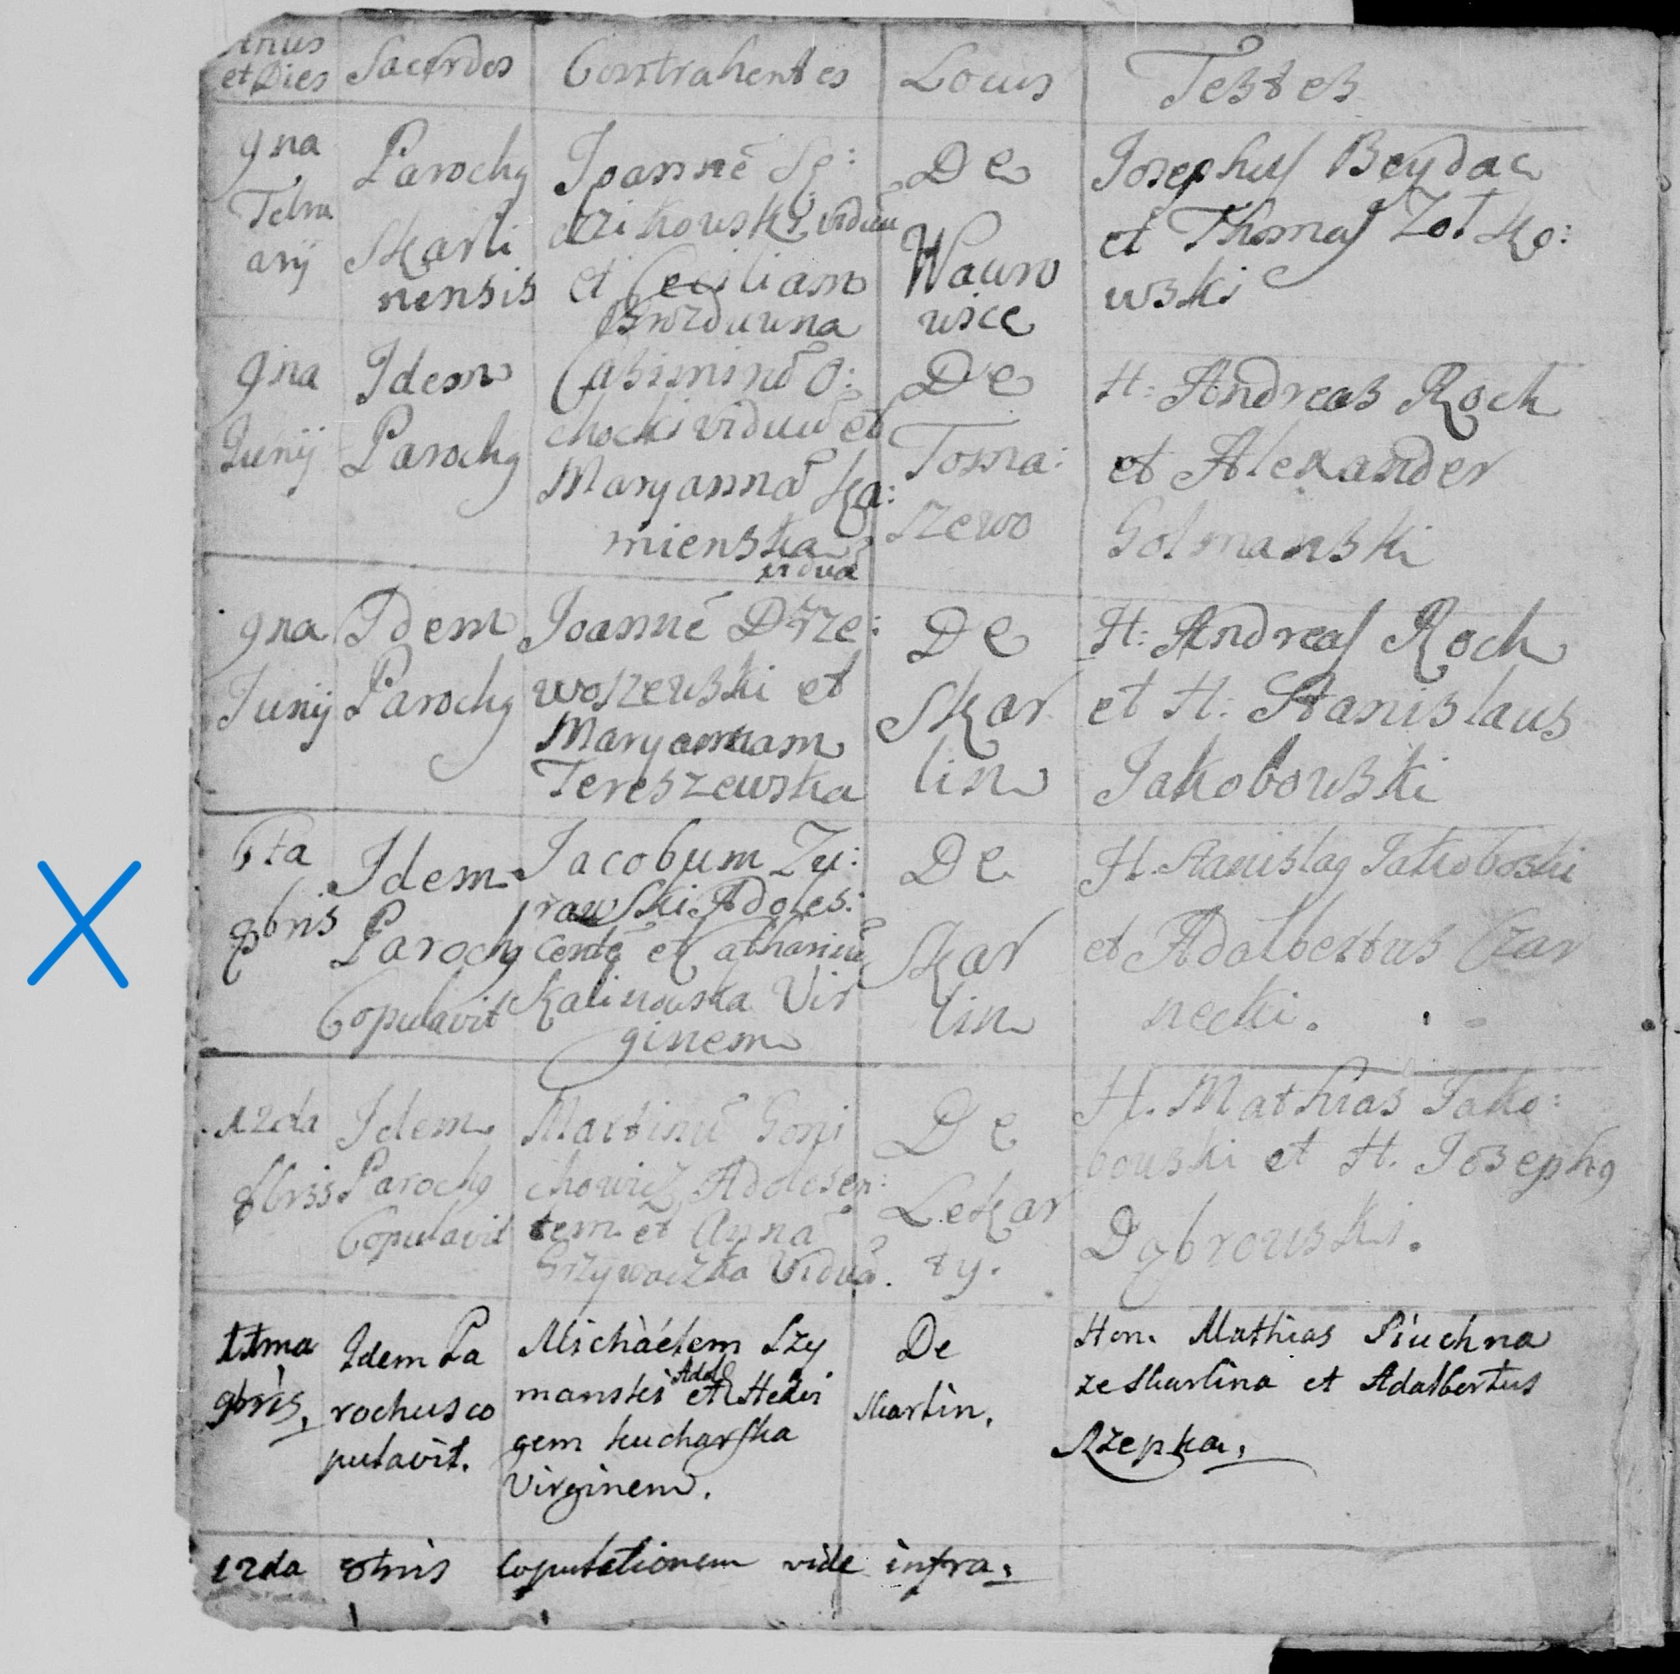 Anus
et Dies Sacerdos Contrahentes Locus Testes
9na
Februarij
Parochg
Skarli
nensis
Joanné Sę:
dzikowski viduu
et Ceciliam
De
Wawro
wice
Josephus Beydac
et Thomas Zotko:
wski
9na
Junij
Idem
Parochg
Casimirũ O:
chocki viduũ et
Maryannã Ka:
mienska
vidua
De
Toma:
szewo
H: Andreas Roch
et Alexander
Golmanski
9na
Junij
Idem
Parochg
Joanné Drze:
woszewski et
Maryannam
Tereszewska
De
Skar
lin
H: Andreas Roch
et H: Stanislaus
Jakobowski
6ta
8bris
Idem
Parochg
Copulavit
Jacobum Zu:
rawski Adoles:
centẽ et Catharinã
Kalinowska Vir
ginem
De
Skar
lin
H. Stanislag Jakoboski
et Adalbertus Czar
necki.
12da
8bris
Idem
Parochg
Copulavit
Martinũ Goni
chowicz Adolesen:
tem et Annã
Grzywaczka Viduã.
De
Lekar
ty.
H. Mathias Jako:
bouski et H. Josephg
Dąbrouski.
11ma
9bris,
Idem Pa
rochus co
pulavit.
Michäélem Szy
manski Adol et Hedvi
gem Kucharska
Virginem.
De
Skarlin.
Hon. Mathias Piuchna
ze Skarlina et Adalbertus
Rzepka,
12da 8bris Copulationem vide infra,